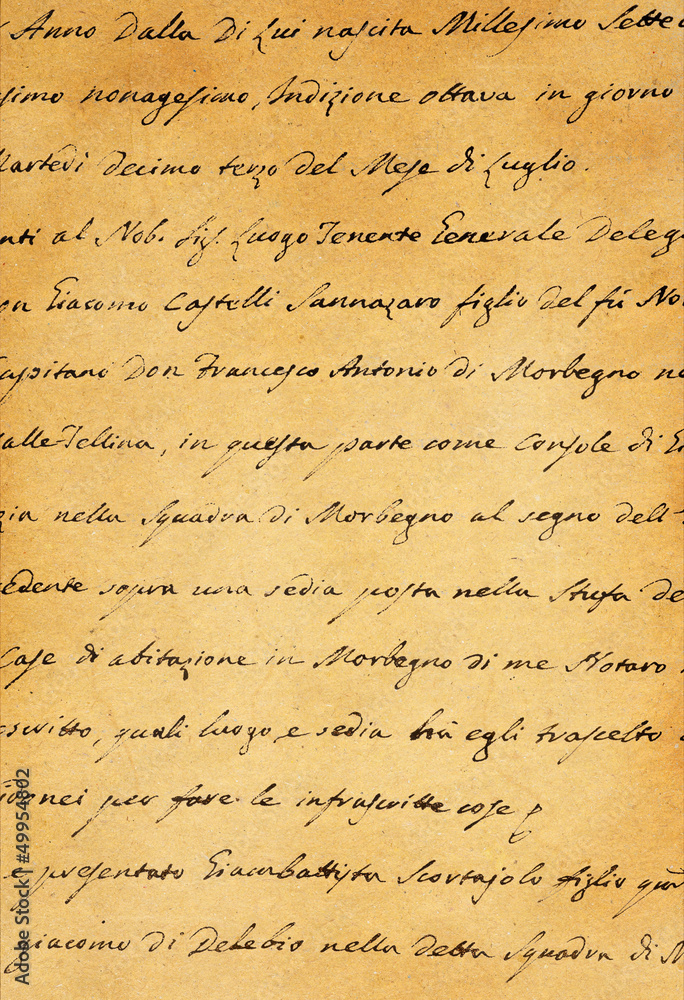 Anno Dalla Di Lui nascita Millesimo Sette
simo nonagesimo, Indizione ottava in giorno
Martedì decimo terzo del Mese di Luglio.
nti al Nob. Sig. Luogo Tenente Generale Deleg
on Giacomo Castelli Sannazaro figlio del fù No
Capitano Don Francesco Antonio di Morbegno ne
alle-Tellina, in questa parte come Console di Gi
zia nella Squadra di Morbegno al segno dell'
edente sopra una sedia posta nella Stufa de
Case di abitazione in Morbegno di me Notaro
oscritto, quali luogo, e sedia hà egli trascelto
idonei per fare le infrascritte cose
e presentato Giambattista Scortajolo figlio qm
giacomo di Delebio nella detta Squadra di M
Adobe Stock | #49954802